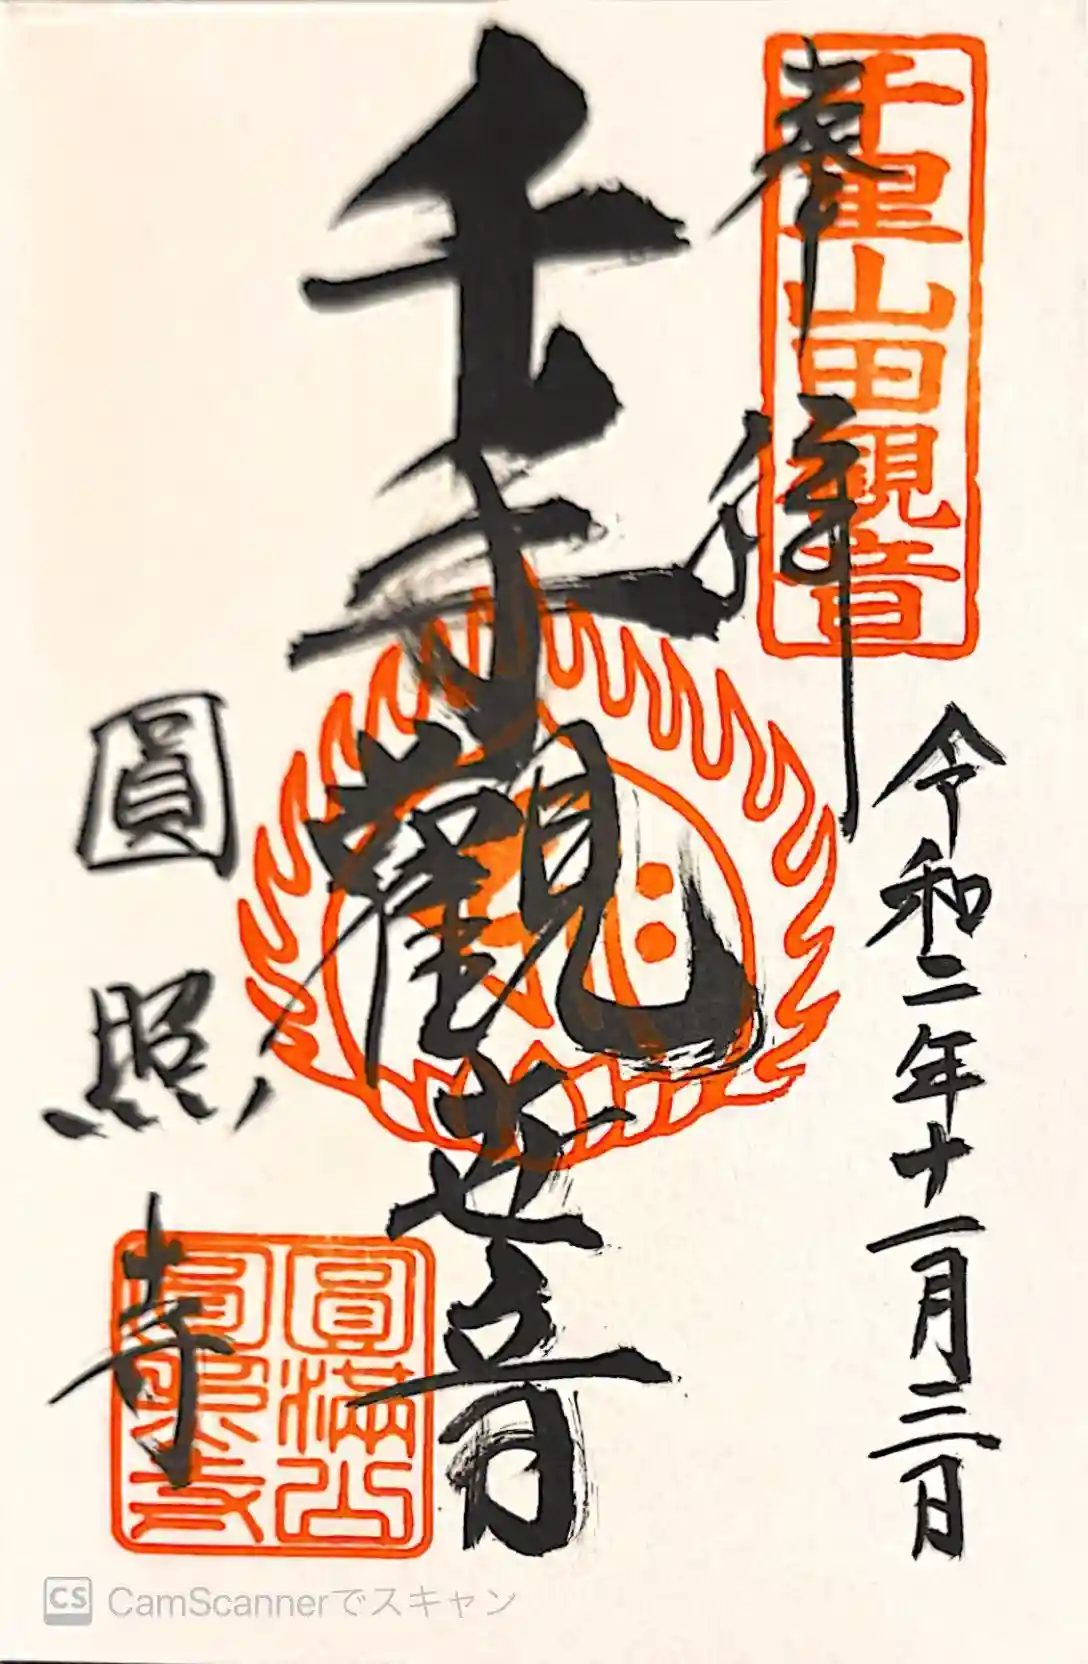 奉拝
千里山田観音
令和二年十一月三日
千手觀世音
圓満山
圓照寺
圓照寺
CamScannerでスキャン